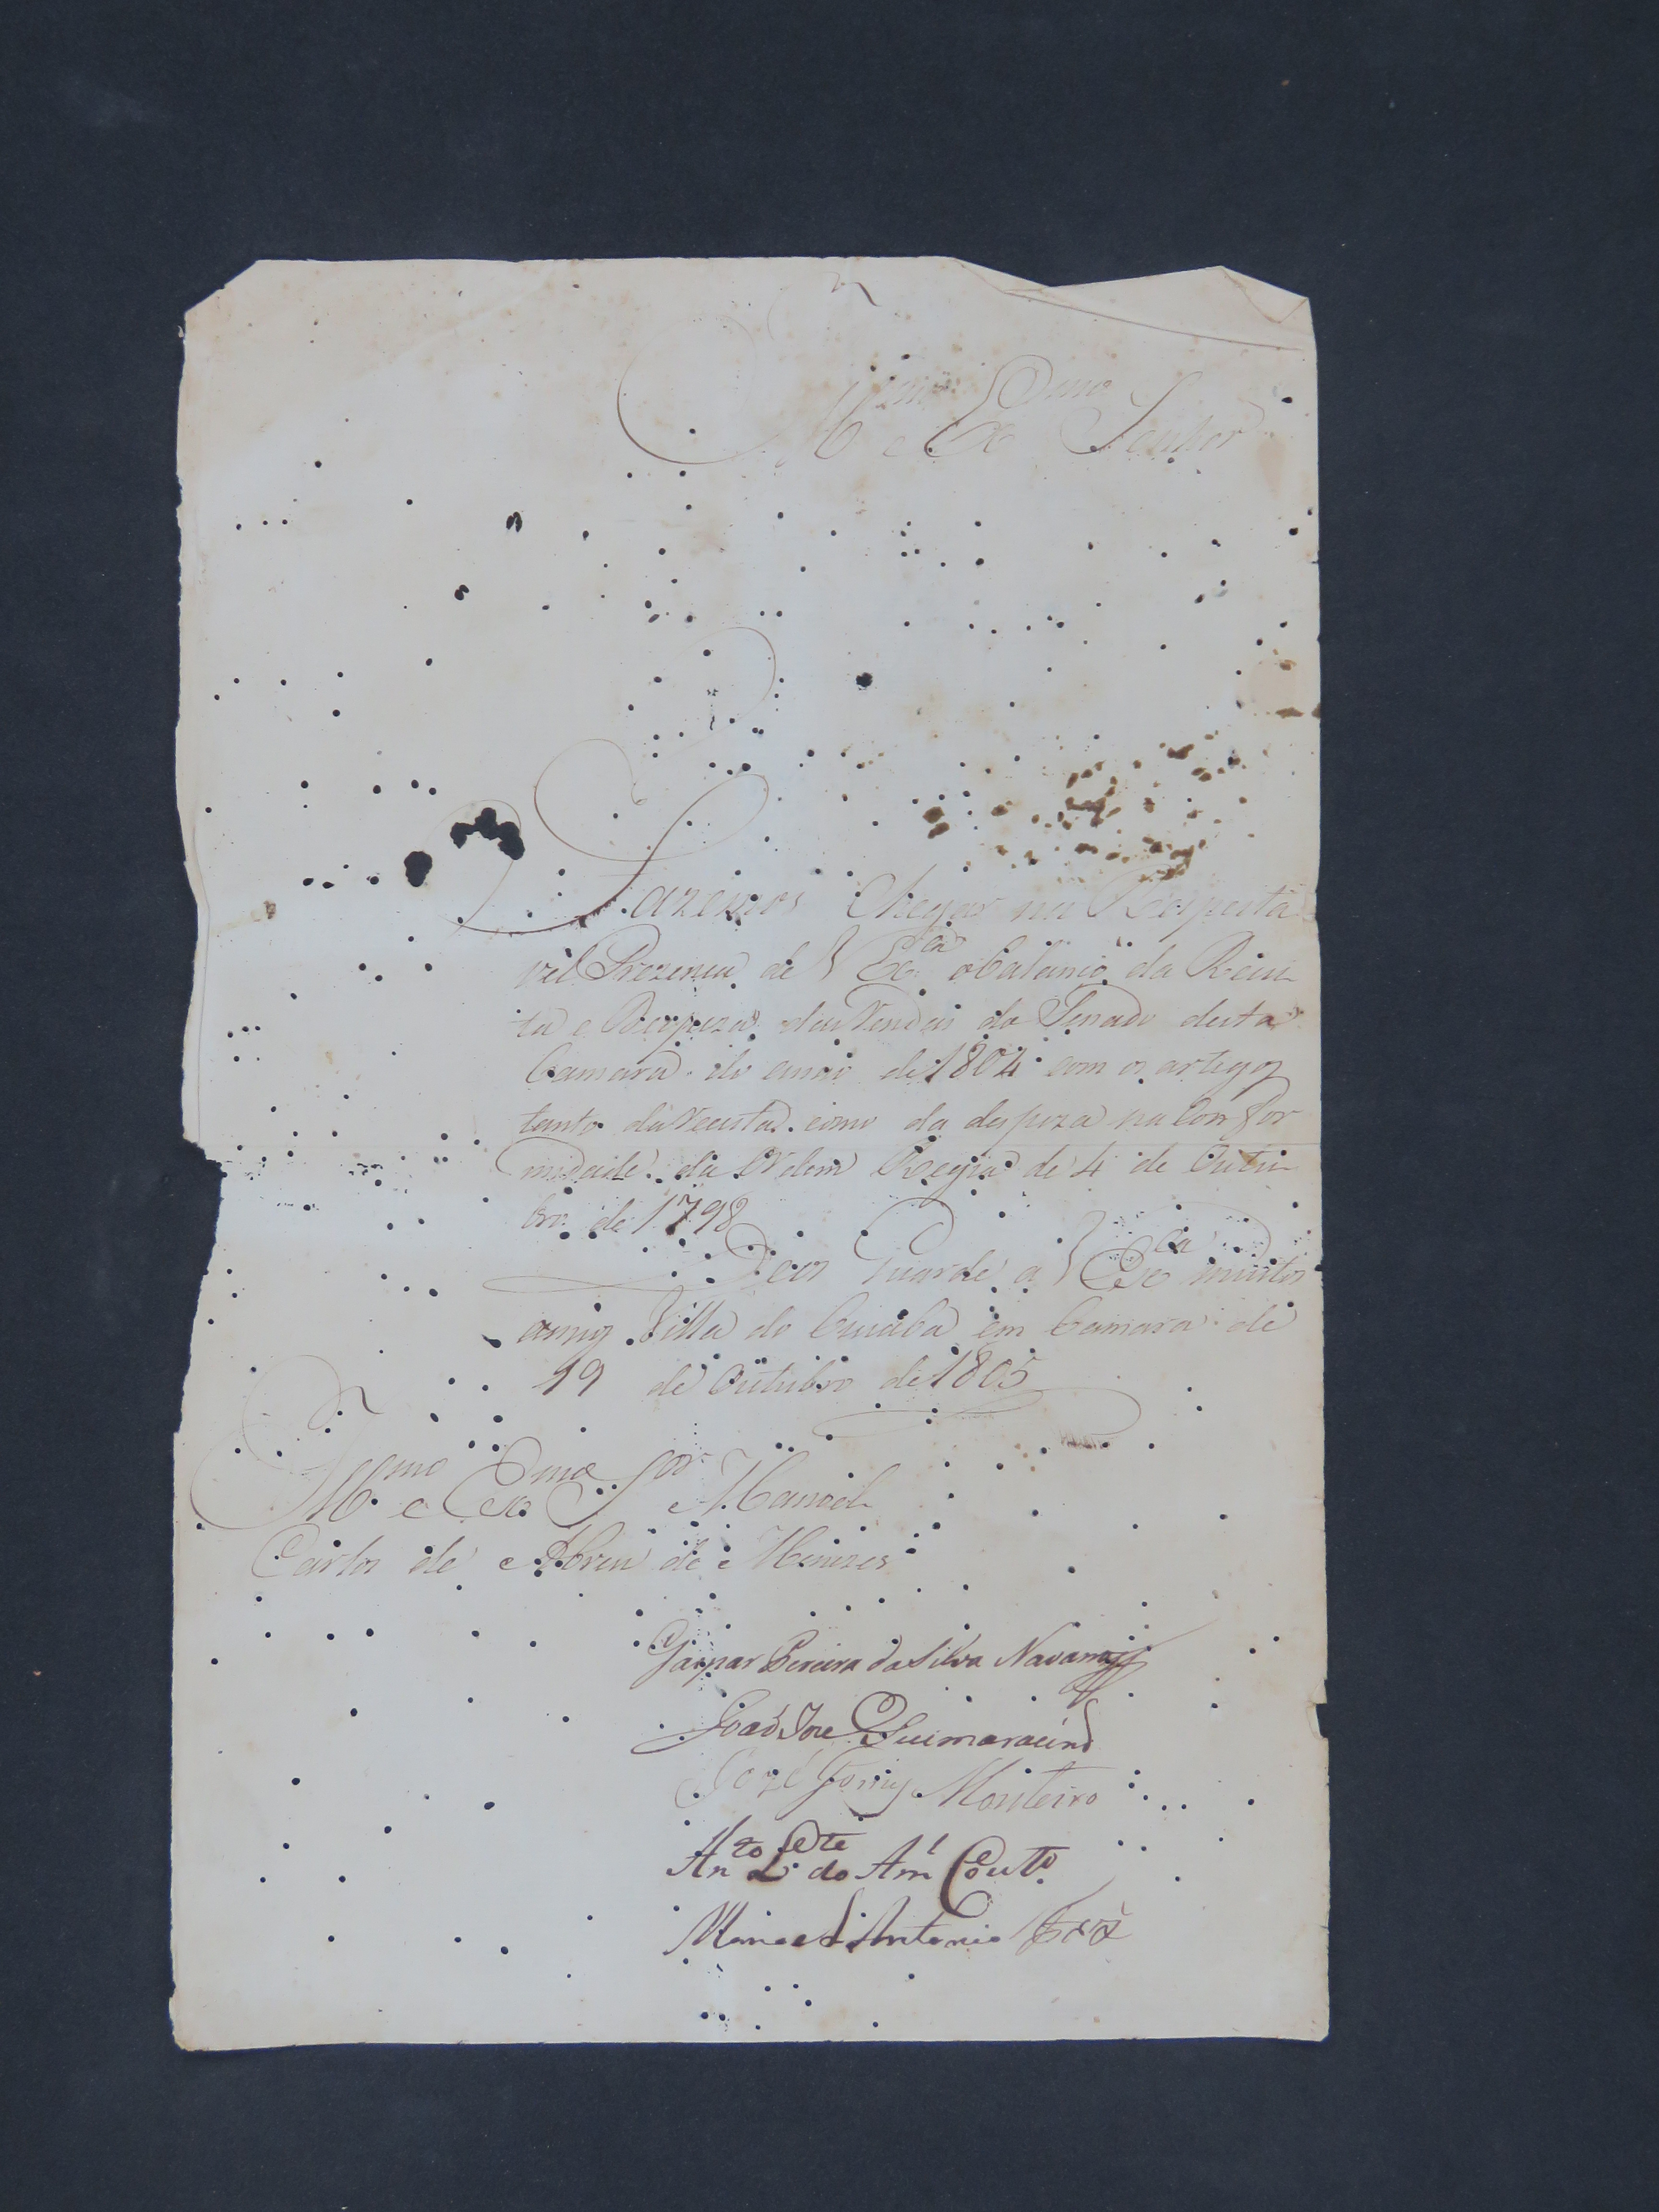 Illmo e Exmo Senhor
Fazemos Chegar na Respeita
vel Prezença de V Exca o balanço da Recei
ta e Despeza das Rendas do Senado desta
Camara do anno de 1804 com os artegos
tanto da Receita como da despeza na Confor
midade da Ordem Regia de 4 de Outu
bro de 1798
Deos Guarde a V Exca muitos
annos Villa do Cuiabá em Camara de
19 de Outubro de 1805
Illmo e Exmo Sor Manoel
Carlos de Abreu de Menezes
Gaspar Pereira da Silva Navarro
João Joze Guimaraẽns
Jozé Gomes Monteiro
Anto Le do Aml Couto
Manoel Antonio